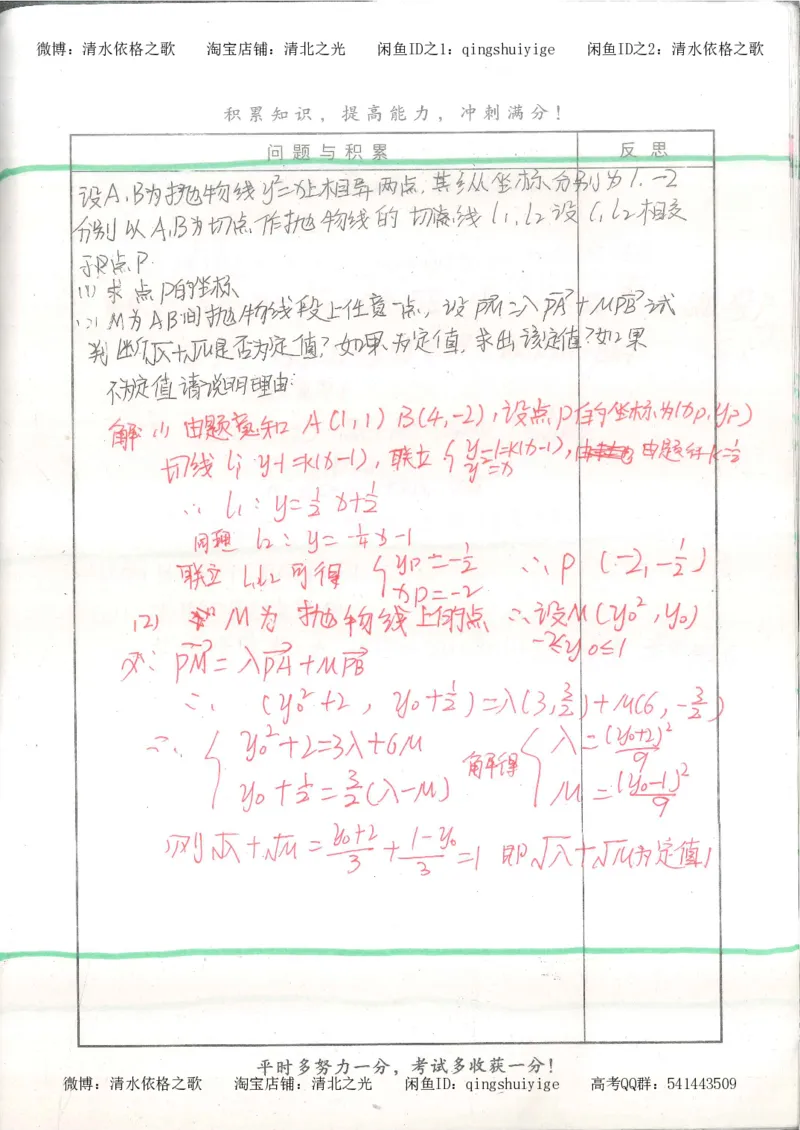 微博：清水依格之歌 淘宝店铺：清北之光 闲鱼ID之1：qingshuiyige 闲鱼ID之2：清水依格之歌
积累知识，提高能力，冲刺满分！
问题与积累 反思
设A、B为抛物线y²=x上相异两点,其纵坐标分别为1,-2
分别以A,B为切点作抛物线的切线l₁,l₂设l₁l₂相交
于点P
(1) 求点P的坐标
(2) M为AB间抛物线段上任意一点,设PM=λPA+μPB试
判断√λ+√μ是否为定值?如果为定值,求出该定值?如果
不为定值请说明理由.
解 (1) 由题意知 A(1,1) B(4,-2),设点P的坐标为(xp,yp)
切线l₁ y-1=k(x-1),联立{y-1=k(x-1), y²=x 由题得k=1/2
∴ l₁: y=1/2 x+1/2
同理 l₂: y=-1/4x-1
联立l₁,l₂可得 {yp=-1/2 xp=-2 ∴P (-2,-1/2)
(2) M为抛物线上的点 ∴设M(y₀²,y₀)
-2≤y₀≤1
又∵ PM=λPA+μPB
∴ (y₀²+2, y₀+1/2)=λ(3,3/2)+μ(6,-3/2)
∴ {y₀²+2=3λ+6μ y₀+1/2=3/2(λ-μ) 解得 {λ=(y₀+2)²/9 μ=(y₀-1)²/9
则√λ+√μ=(y₀+2)/3+(1-y₀)/3=1 即√λ+√μ为定值1
平时多努力一分，考试多收获一分！
微博：清水依格之歌 淘宝店铺：清北之光 闲鱼ID：qingshuiyige 高考QQ群：541443509